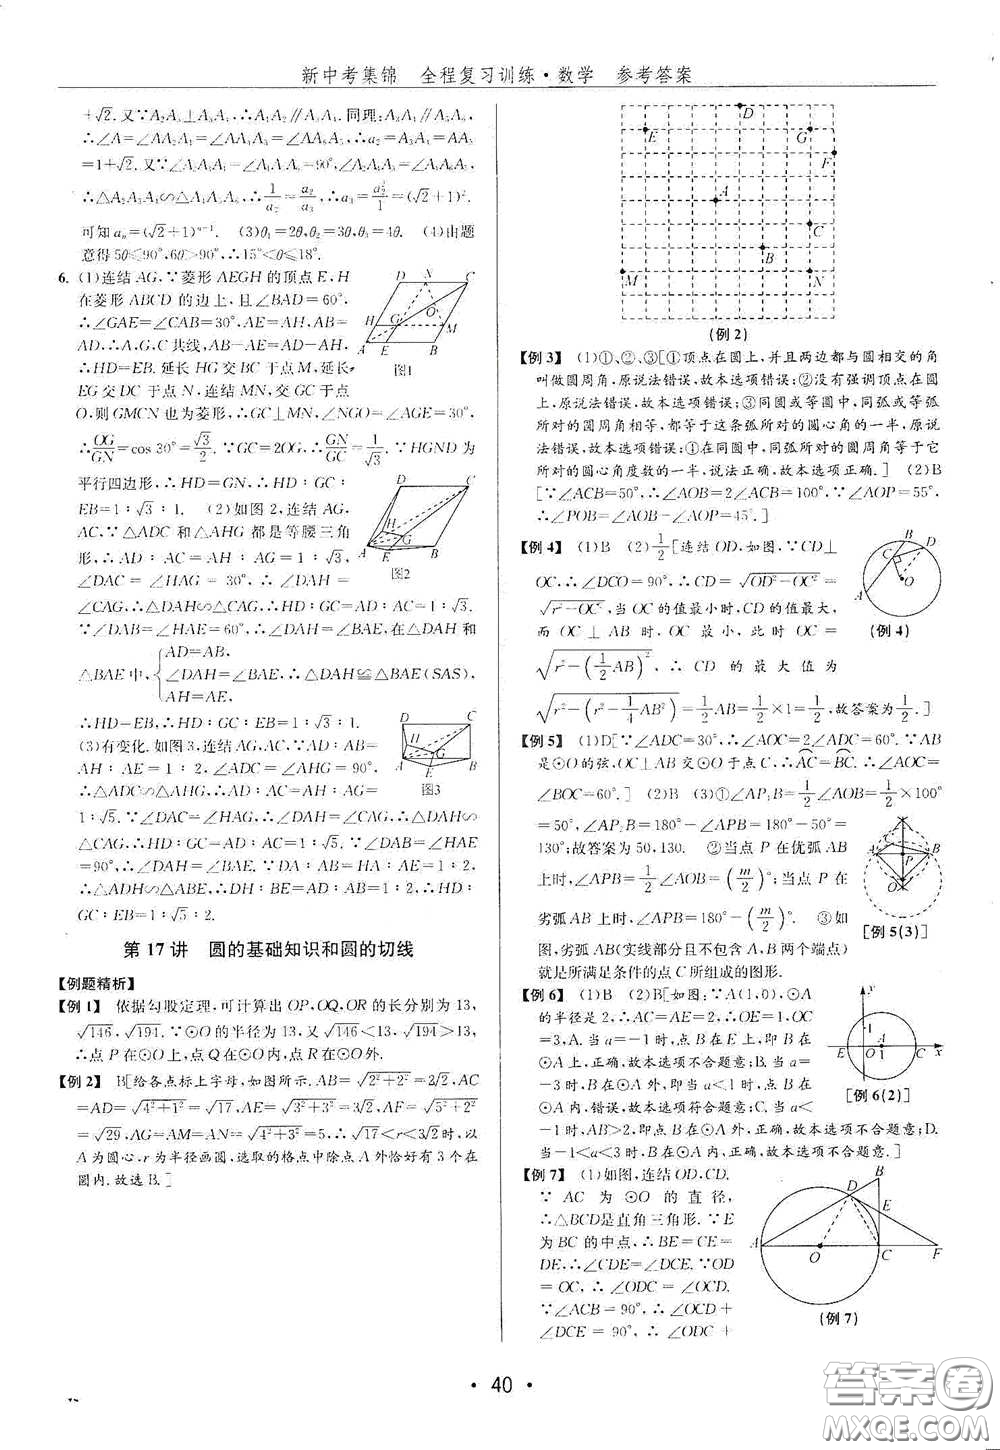 新中考集锦 全程复习训练·数学 参考答案
+√2. 又∵A₂A₃⊥A₃A₄,
可知aₙ=(√2+1)ⁿ⁻¹. (3)θ₁=2θ,θ₂=3θ,θ₃=4θ. (4)由题
意得5θ≤90°,6θ>90°,∴15°<θ≤18°.
6. (1)连结AG,∵菱形AEGH的顶点E、H
在菱形ABCD的边上,且∠BAD=60°,
∴∠GAE=∠CAB=30°,AE=AH,AB=
AD,∴A、G、C共线,AB-AE=AD-AH,
∴HD=EB. 延长HG交BC于点M,延长
EG交DC于点N,连结MN,交GC于点
O,则GMCN也为菱形,∴GC⊥MN,∠NGO=∠AGE=30°,
∴OG/GN=cos 30°=√3/2. ∵GC=2OG,∴GN/GC=1/√3. ∵HGND为
平行四边形,∴HD=GN,∴HD∶GC∶
EB=1∶√3∶1. (2)如图2,连结AG,
AC,∵△ADC和△AHG都是等腰三角
形,∴AD∶AC=AH∶AG=1∶√3,
∠DAC=∠HAG=30°,∴∠DAH=
∠CAG,∴△DAH∽△CAG,∴HD∶GC=AD∶AC=1∶√3.
∵∠DAB=∠HAE=60°,∴∠DAH=∠BAE,在△DAH和
△BAE中,{AD=AB,
∠DAH=∠BAE,
AH=AE,
∴△DAH≌△BAE(SAS),
∴HD=EB,∴HD∶GC∶EB=1∶√3∶1.
(3)有变化. 如图3,连结AG,AC,∵AD∶
AB=AH∶AE=1∶2,∠ADC=∠AHG=90°,
∴△ADC∽△AHG,∴AD∶AC=AH∶AG=
1∶√5. ∵∠DAC=∠HAG,∴∠DAH=∠CAG,∴△DAH∽
△CAG,∴HD∶GC=AD∶AC=1∶√5. ∵∠DAB=∠HAE
=90°,∴∠DAH=∠BAE. ∵DA∶AB=HA∶AE=1∶2,
∴△ADH∽△ABE,∴DH∶BE=AD∶AB=1∶2,∴HD∶
GC∶EB=1∶√5∶2.
图1
图2
图3
第17讲 圆的基础知识和圆的切线
【例题精析】
【例1】 依据勾股定理,可计算出OP,OQ,OR的长分别为13,
√146,√194. ∵⊙O的半径为13,又√146<13,√194>13,
∴点P在⊙O上,点Q在⊙O内,点R在⊙O外.
【例2】 B[给各点标上字母,如图所示. AB=√(2²+2²)=2√2,AC
=AD=√(4²+1²)=√17,AE=√(3²+3²)=3√2,AF=√(5²+2²)
=√29,AG=AM=AN=√(4²+3²)=5,∴√17<r<3√2时,以
A为圆心,r为半径画圆,选取的格点中除点A外恰好有3个在
圆内. 故选B.]
(例2)
【例3】 (1)①、②、③[①顶点在圆上,并且两边都与圆相交的角
叫做圆周角,原说法错误,故本选项错误;②没有强调顶点在圆
上,原说法错误,故本选项错误;③同圆或等圆中,同弧或等弧
所对的圆周角相等,都等于这条弧所对的圆心角的一半,原说
法错误,故本选项错误;④在同圆中,同弧所对的圆周角等于它
所对的圆心角度数的一半,说法正确,故本选项正确.] (2)B
[∵∠ACB=50°,∴∠AOB=2∠ACB=100°,∵∠AOP=55°,
∴∠POB=∠AOB-∠AOP=45°.]
【例4】 (1)B (2)1/2[连结OD,如图,∵CD⊥
OC,∴∠DCO=90°,∴CD=√(OD²-OC²)=
√(r²-OC²),当OC的值最小时,CD的值最大,
而OC⊥AB时,OC最小,此时OC=
√(r²-(1/2AB)²),∴CD的最大值为
√(r²-(r²-1/4AB²))=1/2AB=1/2×1=1/2,故答案为1/2.]
(例4)
【例5】 (1)D[∵∠ADC=30°,∴∠AOC=2∠ADC=60°. ∵AB
是⊙O的弦,OC⊥AB交⊙O于点C,∴AC=BC. ∴∠AOC=
∠BOC=60°.] (2)B (3)①∠AP₁B=1/2∠AOB=1/2×100°
=50°,∠AP₂B=180°-∠APB=180°-50°=
130°;故答案为50,130. ②当点P在优弧AB
上时,∠APB=1/2∠AOB=(m/2)°;当点P在
劣弧AB上时,∠APB=180°-(m/2)°. ③如
图,劣弧AB(实线部分且不包含A、B两个端点)
就是所满足条件的点C所组成的图形.
[例5(3)]
【例6】 (1)B (2)B[如图:∵A(1,0),⊙A
的半径是2,∴AC=AE=2,∴OE=1,OC=
3,A. 当a=-1时,点B在E上,即B在
⊙A上,正确,故本选项不合题意;B. 当a=
-3时,B在⊙A外,即当a<1时,点B在⊙A
内,错误,故本选项符合题意;C. 当a<
-1时,AB>2,即点B在⊙A外,正确,故本选项不合题意;D.
当-1<a<3时,B在⊙A内,正确,故本选项不合题意.]
[例6(2)]
【例7】 (1)如图,连结OD,CD.
∵AC为⊙O的直径,
∴△BCD是直角三角形. ∵E
为BC的中点,∴BE=CE=
DE,∴∠CDE=∠DCE. ∵OD
=OC,∴∠ODC=∠OCD.
∵∠ACB=90°,∴∠OCD+
∠DCE=90°,∴∠ODC+
(例7)
· 40 ·
答案圈
MXQE.COM